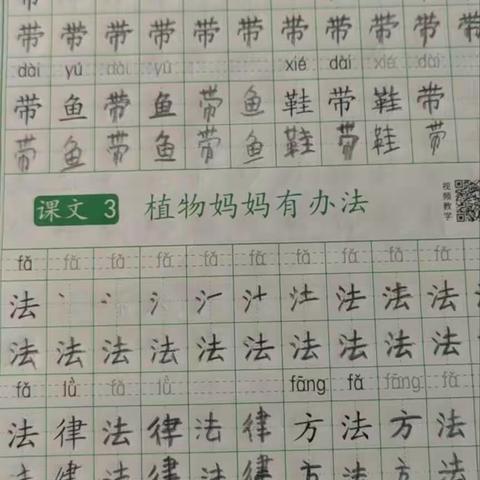 带 带 带 带 带 带 带 带 带 带
dài yú dài yú xié dài xié dài
带 鱼 带 鱼 带 鱼 鞋 带 鞋 带
带 鱼 带 鱼 带 鱼 鞋 带 鞋 带
课文 3 植物妈妈有办法
视频教学
fǎ fǎ fǎ fǎ fǎ fǎ fǎ fǎ fǎ fǎ
法 法 法 法 法
法 法 法 法 法 法 法 法 法 法
fǎ lǜ fǎ lǜ fāng fǎ fāng fǎ
法 律 法 律 法 律 方 法 方 法
法 律 法 律 法 律 方 法 方 法